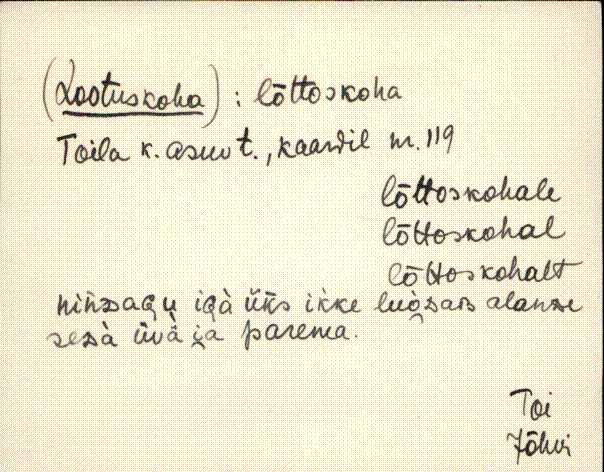 (Lootuskoha) : lōttoskoha
Toila k. asuvt., kaardil nr. 119
lōttoskohale
lōttoskohal
lōttoskohalt
igà ǖks ikke alanse
sezà ǖvä̀ parema.
Toi
Jõhvi